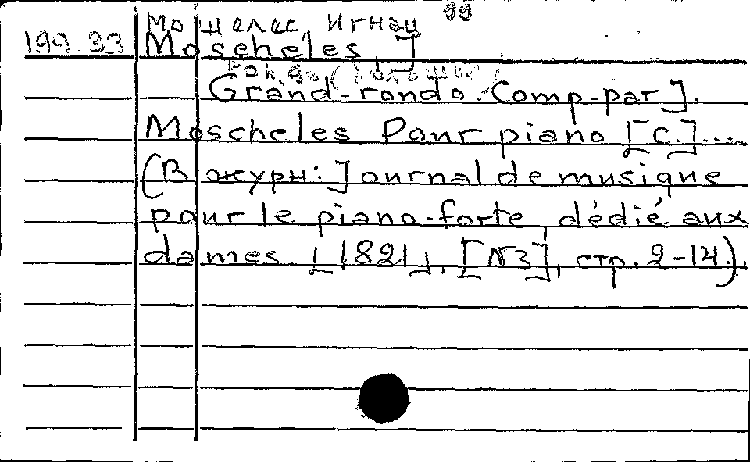 99
Мошелес, Игнац
199.33 Moscheles, J
Рондо (большое)
Grand-rondo. Comp. par J.
Moscheles Pour piano [C.]...
(В журн: Journal de musique
pour le piano-forte, dédié aux
dames. [1821], [N3], стр. 2-14).